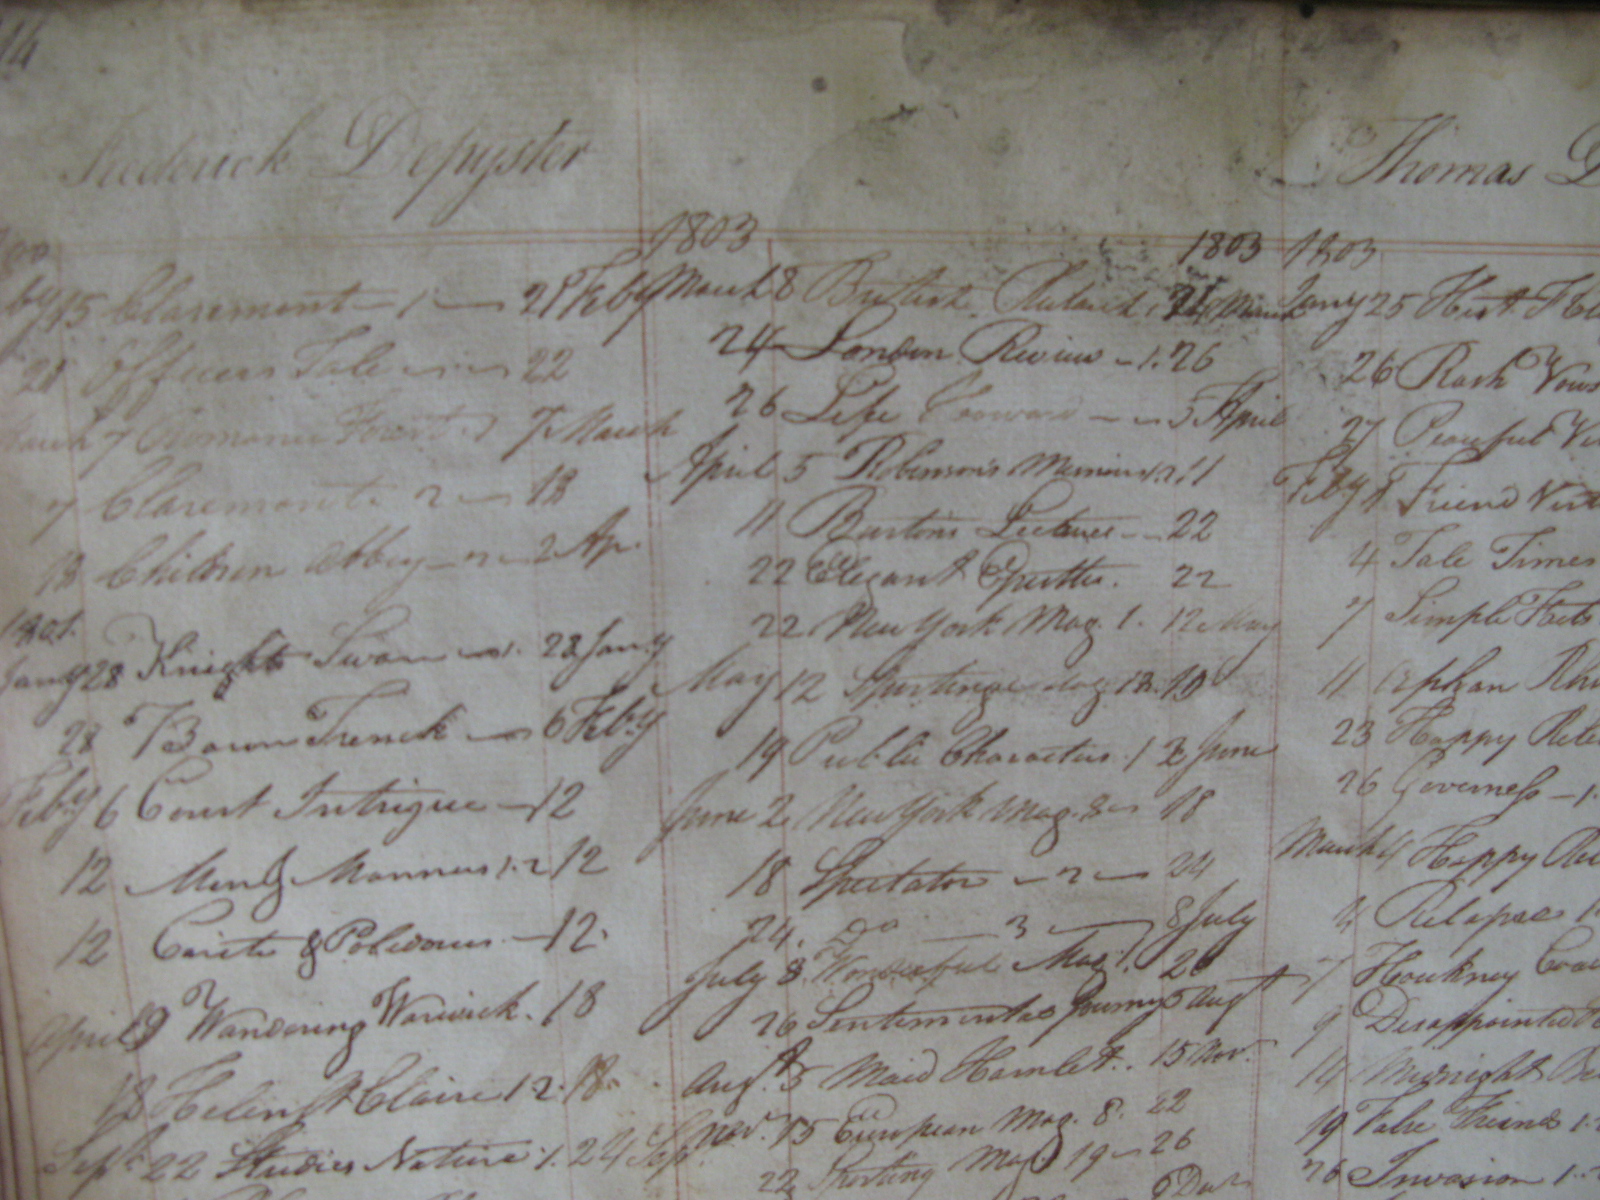 14
Frederick Depyster
15 Claremont - 1 - 21 Feby
21 Officers Tale - - - 22
March 7 Romance Forest 1 7 March
7 Claremont. 2 - 18
18 Children Abbey - 2 - 2 Ap.
1801.
Jany 28 Knights Swan - 1. 28 Jany
28 Baron Trenck - 6 Feby
Feby 6 Court Intrigue - 12
12 Men & Manners 1.2 12
12 & - 12.
April 9 Wandering Warwick. 18
18 Helen St Claire 1.2. 18.
Sept. 22 Studies Nature 1. 24 Sep.
1803 1803
March 8 British Plutarch 24 March
24 London Review - 1. 26
26 Life - - 5 April
April 5 Robinson's Memoirs 1.2. 11
11 Burton's Lectures - - 22
22 Elegant Epistles. 22
22 New York Mag. 1. 12 May
May 12 Sporting Mag 12. 19
19 Public Characters. 1 2 June
June 2 New York Mag. 8 - 18
18 Spectator - 2 - 24
24. Do - 3 - 8 July
July 8. Wonderful Mag. 1. 26
26 Sentimental Journey 5 Augt
Augt. 5 Maid Hamlet. . 15 Nov.
Nov. 15 European Mag. 8. 22
22 Sporting Mag 19 - 26
Thomas D
1803
Jany 25 Hist.
26 Rash Vows
27 Peaceful Vi
Feby 1 Friend Virt
4 Tale Times
7 Simple
11 Orphan Rhi
23 Happy
26 Governess - 1.
March 4 Happy
4 Relapse 1
7 Hackney Coa
9 Disappointed
14 Midnight
19 False Friend 1.
26 Invasion 1.